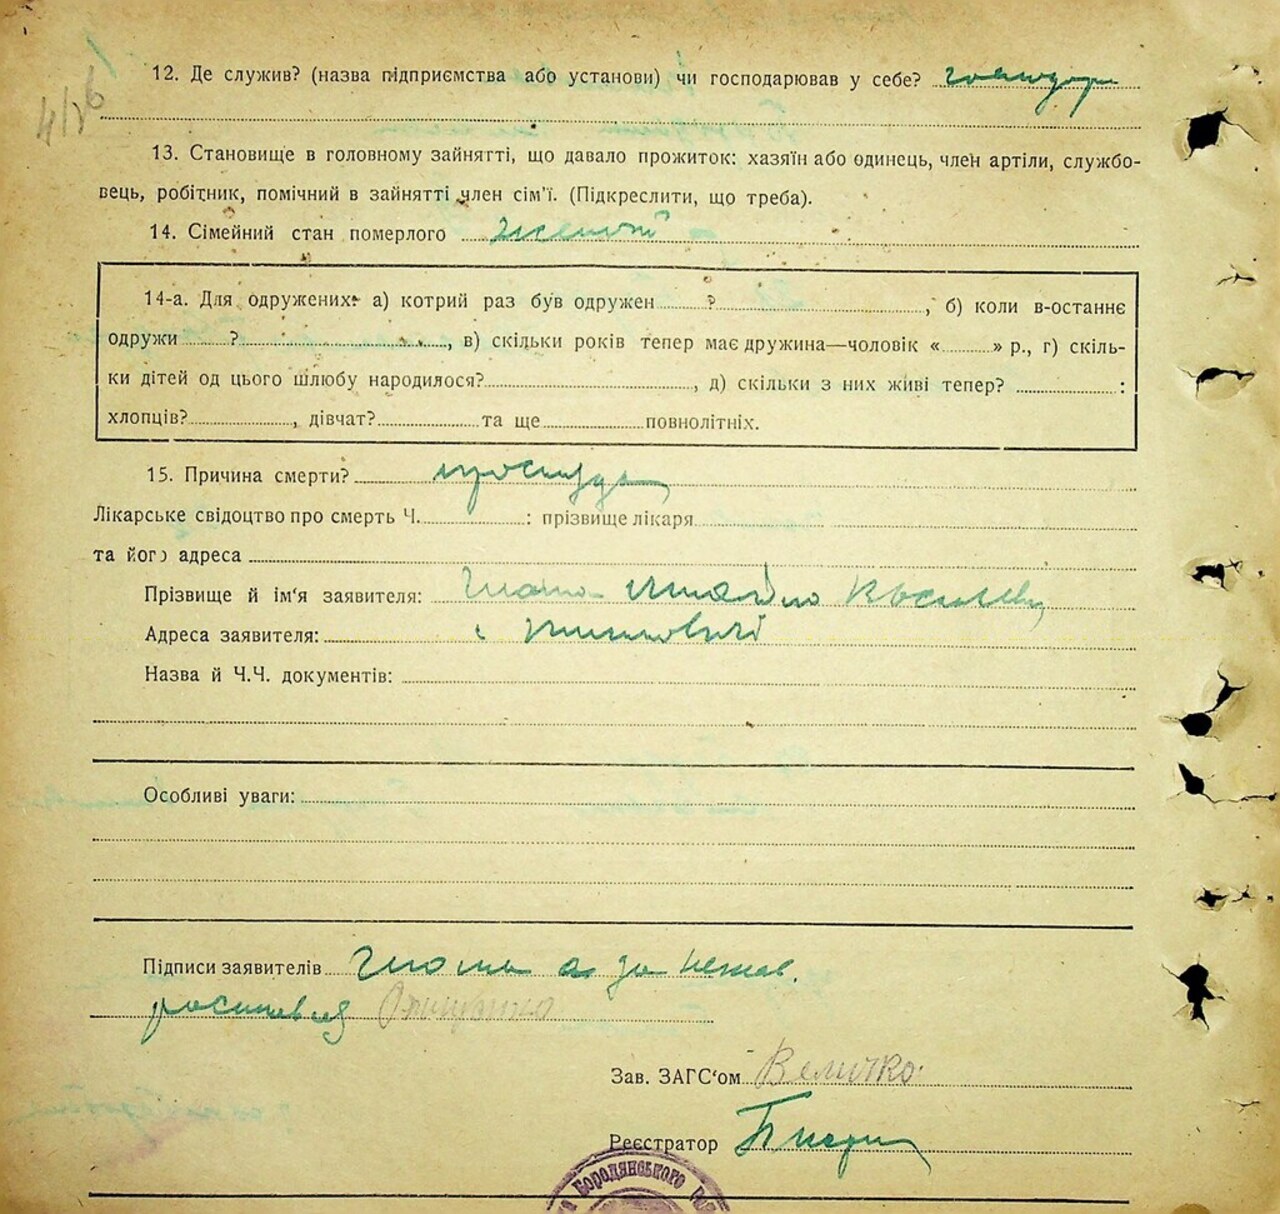 4/76
12. Де служив? (назва підприємства або установи) чи господарював у себе? господар
13. Становище в головному зайнятті, що давало прожиток: хазяїн або одинець, член артіли, службо-
вець, робітник, помічний в зайнятті член сім'ї. (Підкреслити, що треба).
14. Сімейний стан померлого женат
14-а. Для одружених: а) котрий раз був одружен ? , б) коли в-останнє
одружи ? , в) скільки років тепер має дружина—чоловік « » р., г) скіль-
ки дітей од цього шлюбу народилося? , д) скільки з них живі тепер? :
хлопців? , дівчат? та ще повнолітніх.
15. Причина смерти? простуда
Лікарське свідоцтво про смерть Ч. : прізвище лікаря
та його адреса
Прізвище й ім'я заявителя:
Адреса заявителя: с
Назва й Ч.Ч. документів:
Особливі уваги:
Підписи заявителів а за негр.
росписався
Зав. ЗАГС'ом Величко
Реєстратор
Бородянського